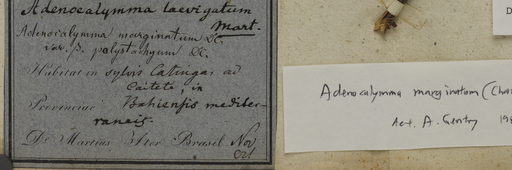 Adenocalymma laevigatum
Mart.
Adenocalymma marginatum &c.
var. β. polystachyum &c.
Habitat in sylvis Catingas ad
Caitete, in
Provinciae Bahiensis mediter-
raneis.
Dr. Martius Iter Brasil. Nov
Oct
Adenocalymma marginatum (Cham
Det. A. Gentry 198
D